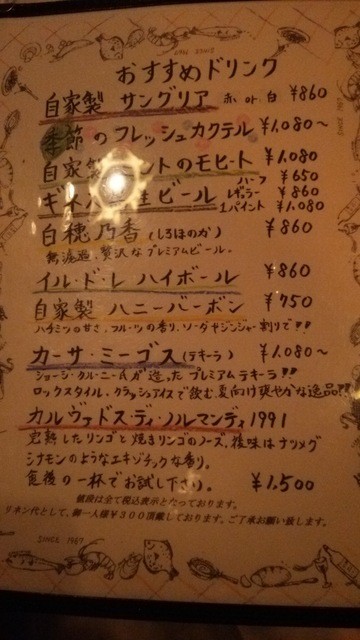 SINCE 1987
おすすめドリンク
自家製 サングリア 赤 or 白 ¥860
季節のフレッシュカクテル ¥1,080〜
自家製ミントのモヒート ¥1,080
ハーフ ¥650
ギネス 生ビール レギュラー ¥860
1パイント ¥1,080
白穂乃香 (しろほのか) ¥860
無濾過、贅沢なプレミアムビール。
イル・ド・レ ハイボール ¥860
自家製 ハニーバーボン ¥750
ハチミツの甘さ、フルーツの香り、ソーダやジンジャー割りで!!
カーサ・ミーゴス (テキーラ) ¥1,080〜
ジョージ・クルーニーが造ったプレミアムテキーラ!!
ロックスタイル、クラッシュアイスで飲む夏向け爽やかな逸品!!
カルヴァドス・ディ・ノルマンディ 1991
完熟したリンゴと焼きリンゴのノーズ。後味はナツメグ
シナモンのようなエキゾチックな香り。
食後の一杯でお試し下さい。 ¥1,500
値段は全て税込表示となっております。
リネン代として、御一人様¥300頂戴しております。ご了承お願い致します。
SINCE 1987